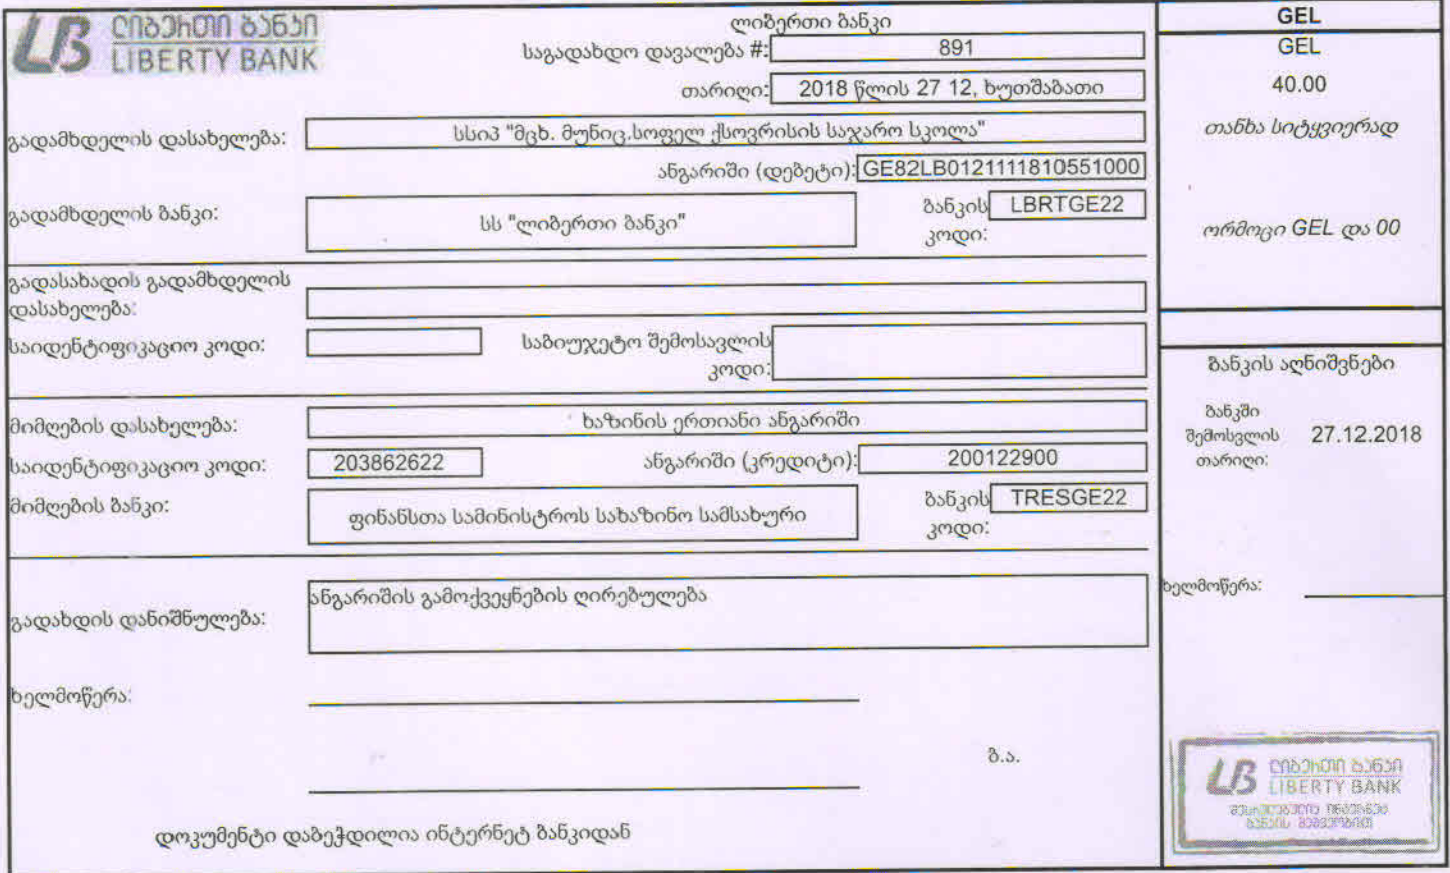 ლიბერთი ბანკი
LIBERTY BANK
ლიბერთი ბანკი
საგადახდო დავალება #: 891
თარიღი: 2018 წლის 27 12, ხუთშაბათი
გადამხდელის დასახელება: სსიპ "მცხ. მუნიც.სოფელ ქსოვრისის საჯარო სკოლა"
ანგარიში (დებეტი): GE82LB0121111810551000
გადამხდელის ბანკი: სს "ლიბერთი ბანკი"
ბანკის კოდი: LBRTGE22
გადასახადის გადამხდელის
დასახელება:
საიდენტიფიკაციო კოდი:
საბიუჯეტო შემოსავლის
კოდი:
მიმღების დასახელება: ხაზინის ერთიანი ანგარიში
საიდენტიფიკაციო კოდი: 203862622
ანგარიში (კრედიტი): 200122900
მიმღების ბანკი: ფინანსთა სამინისტროს სახაზინო სამსახური
ბანკის კოდი: TRESGE22
გადახდის დანიშნულება: ანგარიშის გამოქვეყნების ღირებულება
ხელმოწერა:
ბ.ა.
დოკუმენტი დაბეჭდილია ინტერნეტ ბანკიდან
GEL
GEL
40.00
თანხა სიტყვიერად
ორმოცი GEL და 00
ბანკის აღნიშვნები
ბანკში
შემოსვლის
თარიღი:
27.12.2018
ხელმოწერა:
ლიბერთი ბანკი
LIBERTY BANK
შესრულებულია ინტერნეტ
ბანკის მეშვეობით